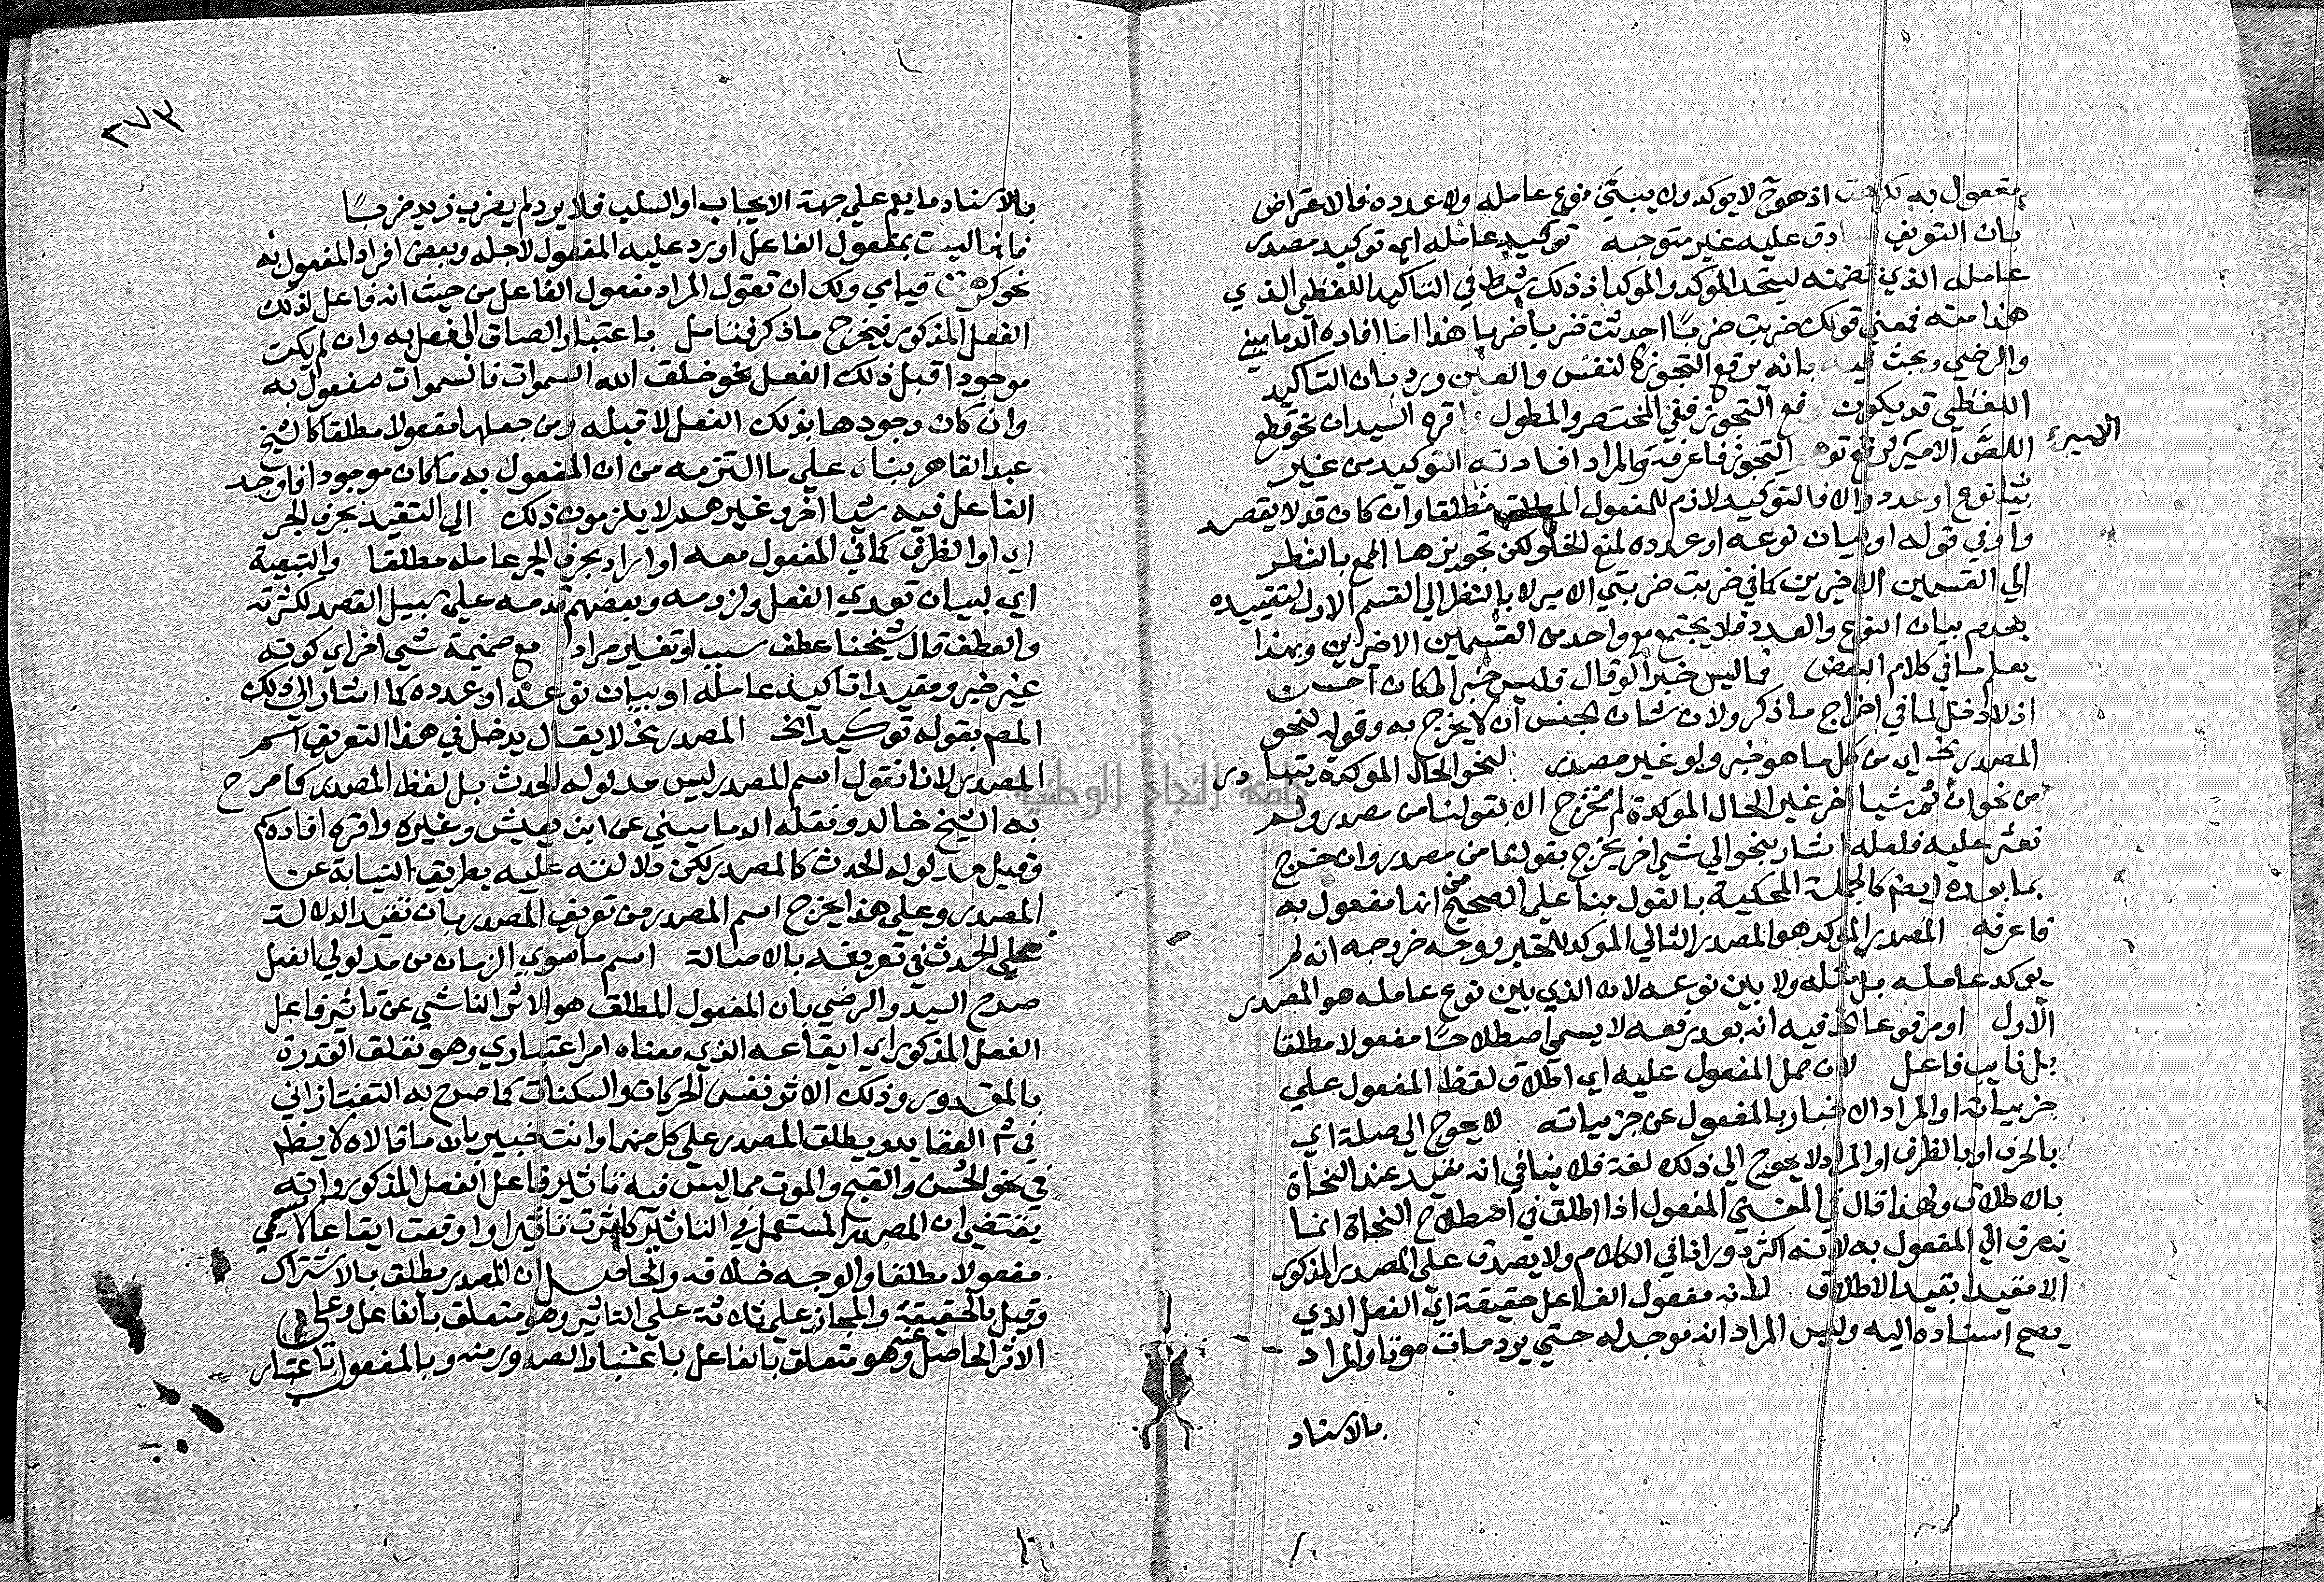 مفعول به لكرهت اذ هو ح لا يوكد ولا يبين نوع عامله ولا عدده فالاعتراض
بان التعريف صادق عليه غير متوجه توكيد عامله اي توكيد مصدر
عامله الذي تضمنه ليتحد المؤكد والموكد اذ ذلك شرط في التاكيد اللفظي الذي
هذا منه فمعنى قولك ضربت ضربا احدثت ضربا ضربا هذا ما افاده الدماميني
والرضي وبحث فيه بانه يرفع التجوز كالنفس والعين ورد بان التاكيد
اللفظي قد يكون لدفع التجوز ففي المختصر والمطول واقره السيد ان نحو قطع
اللص الامير لرفع توهم التجوز فاعرفه والمراد افادته التوكيد من غير
الاميرء
بيان نوع او عدد والا فالتوكيد لازم للمفعول المطلق مطلقا وان كان قد لا يقصد
واو في قوله او بيان نوعه او عدده لمنع الخلو لكن تجويزها الجمع بالنظر
الي القسمين الاخيرين كما في ضربت ضربتي الامير لا بالنظر الي القسم الاول لتقييده
بعدم بيان النوع والعدد فلا يجتمع مع واحد من القسمين الاخيرين وبهذا
يعلم ما في كلام البعض فما ليس خبرا لو قال فليس خبر الكان احسن
اذ لا دخل لما في اخراج ما ذكر ولان شان الجنس ان لا يخرج به وقوله لنحو
المصدر الخ اي من كل ما هو خبر ولو غير مصدر لنحو الحال الموكدة يتبادر
من نحو ان ثم شيا اخر غير الحال الموكدة لم يخرج الا بقولنا من مصدر ولم
نعثر عليه فلعله اشار بنحو الي شي اخر يخرج بقولنا من مصدر وان خرج
بما بعده ايضا كالجملة المحكية بالقول بنا على الصحيح من انها مفعول به
فاعرفه المصدر الموكد هو المصدر الثاني الموكد للخبر ووجه خروجه انه لم
يوكد عامله بل مثله ولا بين نوعه لان الذي بين نوع عامله هو المصدر
الاول او مرفوعا الخ فيه انه بعد رفعه لا يسمى اصطلاحا مفعولا مطلقا
بل نايب فاعل لان حمل المفعول عليه اي اطلاق لفظ المفعول علي
جزيياته او المراد الاخبار بالمفعول عن جزيياته لا يحوج الي صلة اي
بالحرف او بالظرف او المراد لا يحوج الي ذلك لغة فلا ينافي انه مقيد عند النحاة
بالاطلاق ولهذا قال في المغني المفعول اذا اطلق في اصطلاح النحاة انما
ينصرف الي المفعول به لانه اكثر دورانا في الكلام ولا يصدق علي المصدر المذكور
الا مقيدا بقيد الاطلاق لانه مفعول الفاعل حقيقة اي الفعل الذي
يصح اسناده اليه وليس المراد انه موجد له حتي يرد مات موتا والمراد
بالاسناد
٢٧٣
بالاسناد ما يعم علي جهة الايجاب او السلب فلا يرد لم يضرب زيد ضربا
فانها ليست بمفعول الفاعل اورد عليه المفعول لاجله وبعض افراد المفعول به
نحو كرهت قيامي ولك ان تقول المراد مفعول الفاعل من حيث انه فاعل لذلك
الفعل المذكور فيخرج ما ذكر فتامل باعتبار الصاق الفعل به وان لم يكن
موجودا قبل ذلك الفعل نحو خلق الله السموات فالسموات مفعول به
وان كان وجودها بذلك الفعل لا قبله ومن جعلها مفعولا مطلقا كالشيخ
عبد القاهر بناه علي ما التزمه من ان المفعول به ما كان موجودا فاوجد
الفاعل فيه شيا اخر وغيرهم لا يلزمون ذلك الي التقيد بحرف الجر
اي او الظرف كما في المفعول معه او اراد بحرف الجر عامله مطلقا والتبعية
اي لبيان تعدي الفعل ولزومه وبعضهم قدمه علي سبيل القصد لكثرته
والعطف قال شيخنا عطف سبب او تفسير مراد مع ضميمة شي اخر اي كونه
غير خبر ومفيدا تاكيد عامله او بيان نوعه او عدده كما اشار الي ذلك
المص بقوله توكيدا الخ المصدر الخ لا يقال يدخل في هذا التعريف اسم
المصدر لانا نقول اسم المصدر ليس مدلوله الحدث بل لفظ المصدر كما صرح
به الشيخ خالد ونقله الدماميني عن ابن يعيش وغيره واقره افاده سم
وقيل مدلوله الحدث كالمصدر لكن دلالته عليه بطريق النيابة عن
المصدر وعلي هذا يخرج اسم المصدر من تعريف المصدر بان تقيد الدلالة
علي الحدث في تعريفه بالاصالة اسم ما سوي الزمان من مدلولي الفعل
صرح السيد والرضي بان المفعول المطلق هو الاثر الناشي عن تاثير فاعل
الفعل المذكور اي ايقاعه الذي معناه امر اعتباري وهو تعلق القدرة
بالمقدور وذلك الاثر نفس الحركات والسكنات كما صرح به التفتازاني
في ش العقايد ويطلق المصدر علي كل منهما وانت خبير بان ما قالاه لا يظهر
في نحو الحسن والقبح والموت مما ليس فيه تاثير فاعل الفعل المذكور وانه
يقتضي ان المصدر المستعمل في التاثير كاثرت تاثيرا واوقعت ايقاعا لا يسمى
مفعولا مطلقا والوجه خلافه والحاصل ان المصدر يطلق بالاشتراك
وقيل بالحقيقة والمجاز علي ثلاثة علي التاثير وهو متعلق بالفاعل وعلي
الاثر الحاصل عنه وهو متعلق بالفاعل باعتبار الصدور منه وبالمفعول باعتبار
جامعة النجاح الوطنية